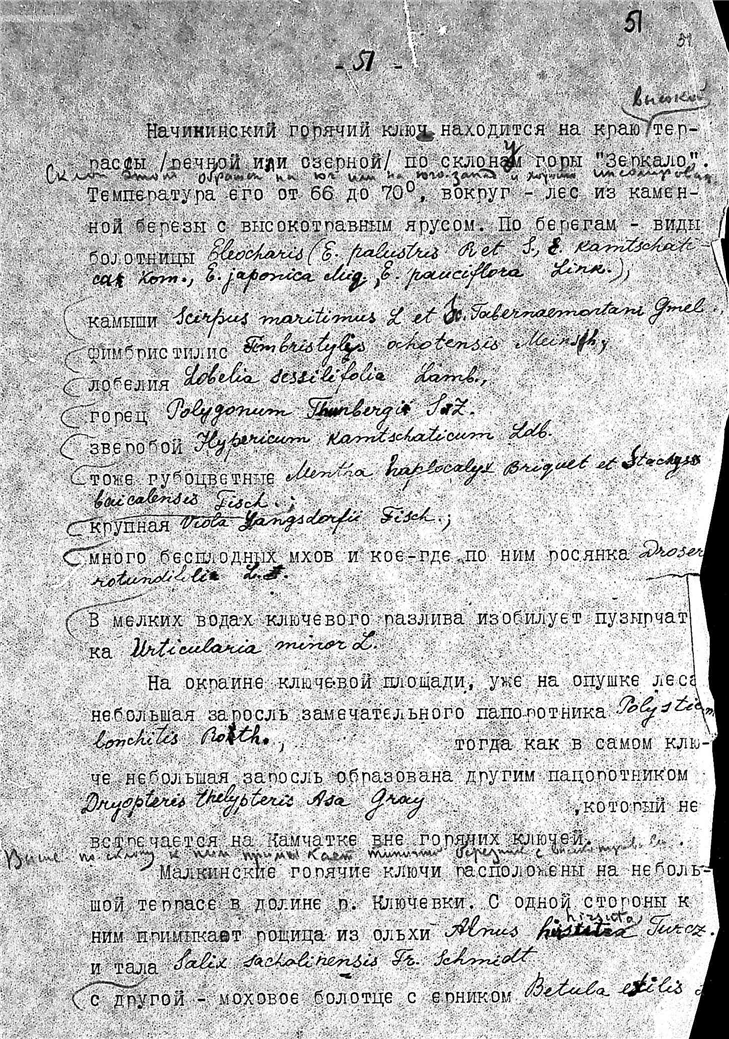 51
51
- 51 -
высокой
Начикинский горячий ключ находится на краю тер-
рассы /речной или озерной/ по склону горы "Зеркало".
Склон этот обращен на юг или на юго-запад и хорошо
Температура его от 66 до 70°, вокруг - лес из камен-
ной березы с высокотравным ярусом. По берегам - виды
болотницы Eleocharis (E. palustris R et S, E kamtschati-
ca Kom., E. japonica Miq, E. pauciflora Link.),
камыши Scirpus maritimus L et Sc. Tabernaemontani Gmel.,
фимбристилис Fimbristylis ochotensis Meinsh,
лобелия Lobelia sessilifolia Lamb.,
горец Polygonum Thunbergii S Z.
зверобой Hypericum kamtschaticum Ldb.
тоже губоцветные Mentha haplocalyx Briquet et Stachys
baicalensis Fisch.;
крупная Viola Langsdorfii Fisch.;
много бесплодных мхов и кое-где по ним росянка Droser
rotundifolia L.
В мелких водах ключевого разлива изобилует пузырчат
ка Urticularia minor L.
На окраине ключевой площади, уже на опушке леса
небольшая заросль замечательного папоротника Polystichum
lonchitis Roth., тогда как в самом клю-
че небольшая заросль образована другим пацоротником
Dryopteris thelypteris Asa Gray ,который не
встречается на Камчатке вне горячих ключей.
Выше по склону к ним примыкает типичный березник с
Малкинские горячие ключи расположены на неболь-
шой террасе в долине р. Ключевки. С одной стороны к
hirsuta
ним примыкает рощица из ольхи Alnus Turcz.
и тала Salix sachalinensis Fr. Schmidt
с другой - моховое болотце с ерником Betula exilis